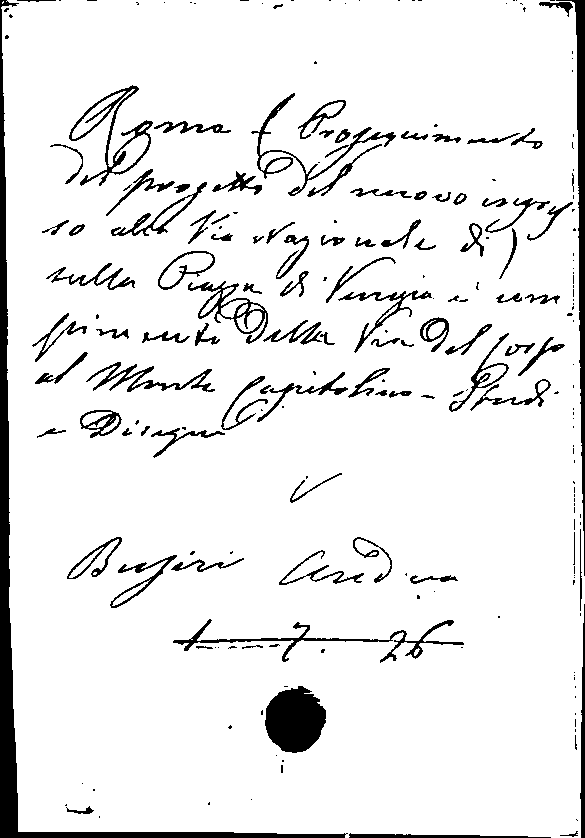 Roma ( Proseguimento
del progetto del nuovo ingres
so alla Via Nazionale di )
sulla Piazza di Venezia e com
pimento della Via del Corso
al Monte Capitolino - Studi
e Disegni
Busiri Andrea
1 7. 26